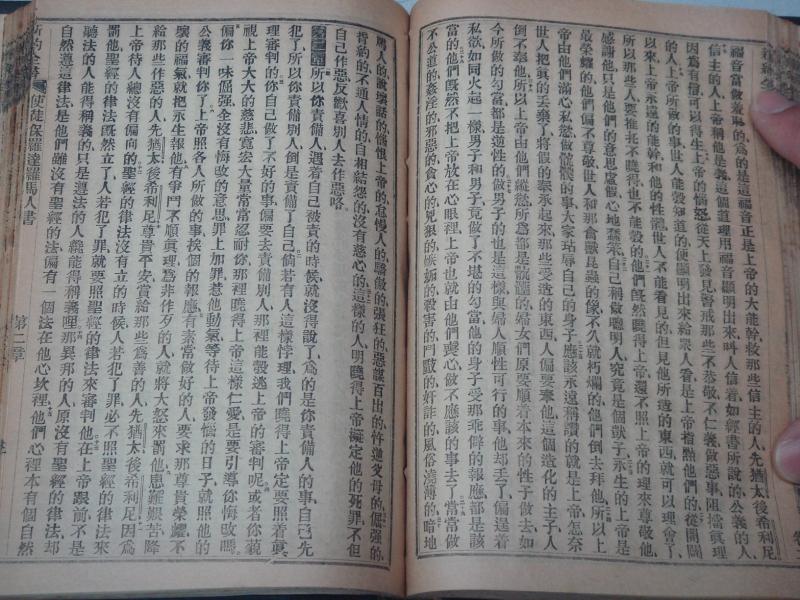 福音當做羞恥的爲的是這福音正是上帝的大能幹救那些信主的人先猶太後希利尼
信主的人上帝稱他是義的這個道理用福音顯明出來叫人信着如經書所說的公義的人
因爲有信可以得生上帝的惱怒從天上發見警戒那些不恭敬不仁義做惡事阻擋眞理
的人上帝所做的事世人能彀知道的使顯明出來給衆人看是上帝指點他們的從開闢
以來上帝永遠的能幹和他的性體世人不能看見的但見他所造的東西就可以理會了
所以那些人要推托不曉得也不能彀的他們既然曉得上帝還不照上帝的理來尊敬他
感謝他只是他們的意思虛假心地蠢笨自己稱做聰明人究竟是個獃子永生的上帝是
最榮耀的他們偏不尊敬世人和那禽獸昆蟲的像不久就朽爛的他們倒去拜他所以上
帝由他們滿心私慾做骯髒的事大家玷辱自己的身子應該永遠稱讚的就是上帝怎奈
世人把眞的丟棄了將假的奉承起來那些受造的東西人偏要奉他這個造化的主子人
倒不奉他所以上帝由他們縱慾所爲都是骯髒的婦女們原要順着本來的性子做去如
今所做的勾當都是逆性的做男子的也是這樣與婦人順性可行的事他却丟了偏逞着
私欲如同火起一樣男子和男子竟做了不堪的勾當他的身子受那乖僻的報應都是該
當的他們既然不把上帝放在心眼裡上帝也就由他們變心做不應該的事去了常常做
不公道的姦淫的邪惡的貪心的兇狠的嫉妬的殺害的鬥毆的奸詐的風俗澆薄的暗地
罵人的說壞話的憎恨上帝的怠慢人的驕傲的強狂的惡謀百出的忤逆父母的倔強的
背約的不通人情的自相結怨的沒有慈心的這樣的人明曉得上帝擬定他的死罪不但
自己作惡反歡喜別人去作惡咯
第二章所以你責備人遇着自己被責的時候就沒得說了爲的是你責備人的事自己先
犯了所以你責備別人倒是責備了自己倘若有人這樣悖理我們曉得上帝定要照着眞
理審判的你自己做了不好的事偏要去責備別人那裡能彀逃上帝的審判呢或者你藐
視上帝大大的慈悲寬宏大量常常忍耐你那裡曉得上帝這樣仁愛是要引導你悔改嗎
偏你一味倔強全沒有悔改的意思罪上加罪惹他動氣等待上帝發惱的日子就照他的
公義審判你了上帝照各人所做的事挨個的報應有素常做好的人要求那尊貴榮耀不
壞的福氣就把永生報他有爭鬥不順眞理爲非作歹的人就將大怒來罰他患難艱苦降
給那些作惡的人先猶太後希利尼尊貴平安賞給那些爲善的人先猶太後希利尼因爲
上帝待人總沒有偏向的聖經的律法沒有立的時候人若犯了罪必不照聖經的律法來
罰他聖經的律法既然立了人若犯了罪就要照聖經的律法來審判他在上帝跟前不是
聽法的人能得稱義的只是遵法的人纔能得稱義哩那異邦的人原沒有聖經的律法却
自然遵這律法是他們雖沒有聖經的法偏有一個法在他心坎裡他們心裡本有個自然
新約全書 使徒保羅達羅馬人書 第二章